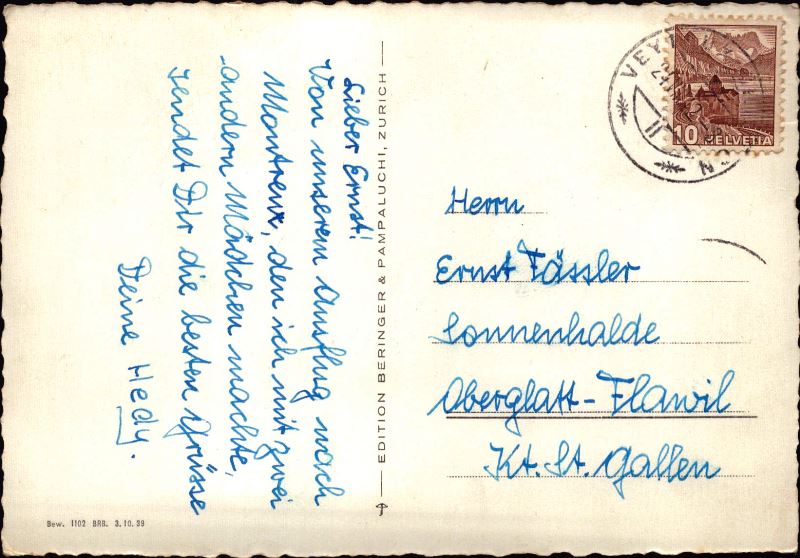 Lieber Ernst!
Von unserem Ausflug nach
Montreux, den ich mit zwei
andern Mädchen machte,
sendet Dir die besten Grüsse
Deine Hedy.
EDITION BERINGER & PAMPALUCHI, ZURICH
10 HELVETIA
Herrn
Ernst Fässler
Sonnenhalde
Oberglatt-Flawil
Kt. St. Gallen
Bew. 1102 BRB. 3.10.39